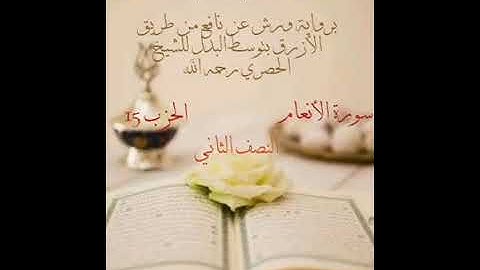 برواية ورش عن نافع من طريق
الأزرق بتوسط البدل للشيخ
الحصري رحمه الله
سورة الأنعام    الحزب 15
النصف الثاني